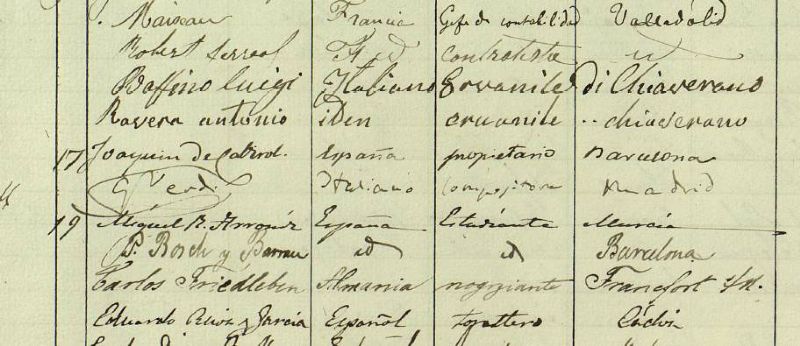 Maiseau Francia Gefe de contabilidad Valladolid
Robert Serraol Fr id contratista id
Boffino Luigi Italiano Ervanile di Chiaverano
Ravera antonio iden eruanile " chiaverano
17 Joaquin de Cabirol. España propietario Barcelona
G Verdi Italiano compositore Madrid
19 Miguel R. Arroniz España Estudiante Murcia
P. Bosch y Barrau id id Barcelona
Carlos Friedleben Almania nogoziante Francfort s/M.
Eduardo Ruiz y Garcia Español Cádiz